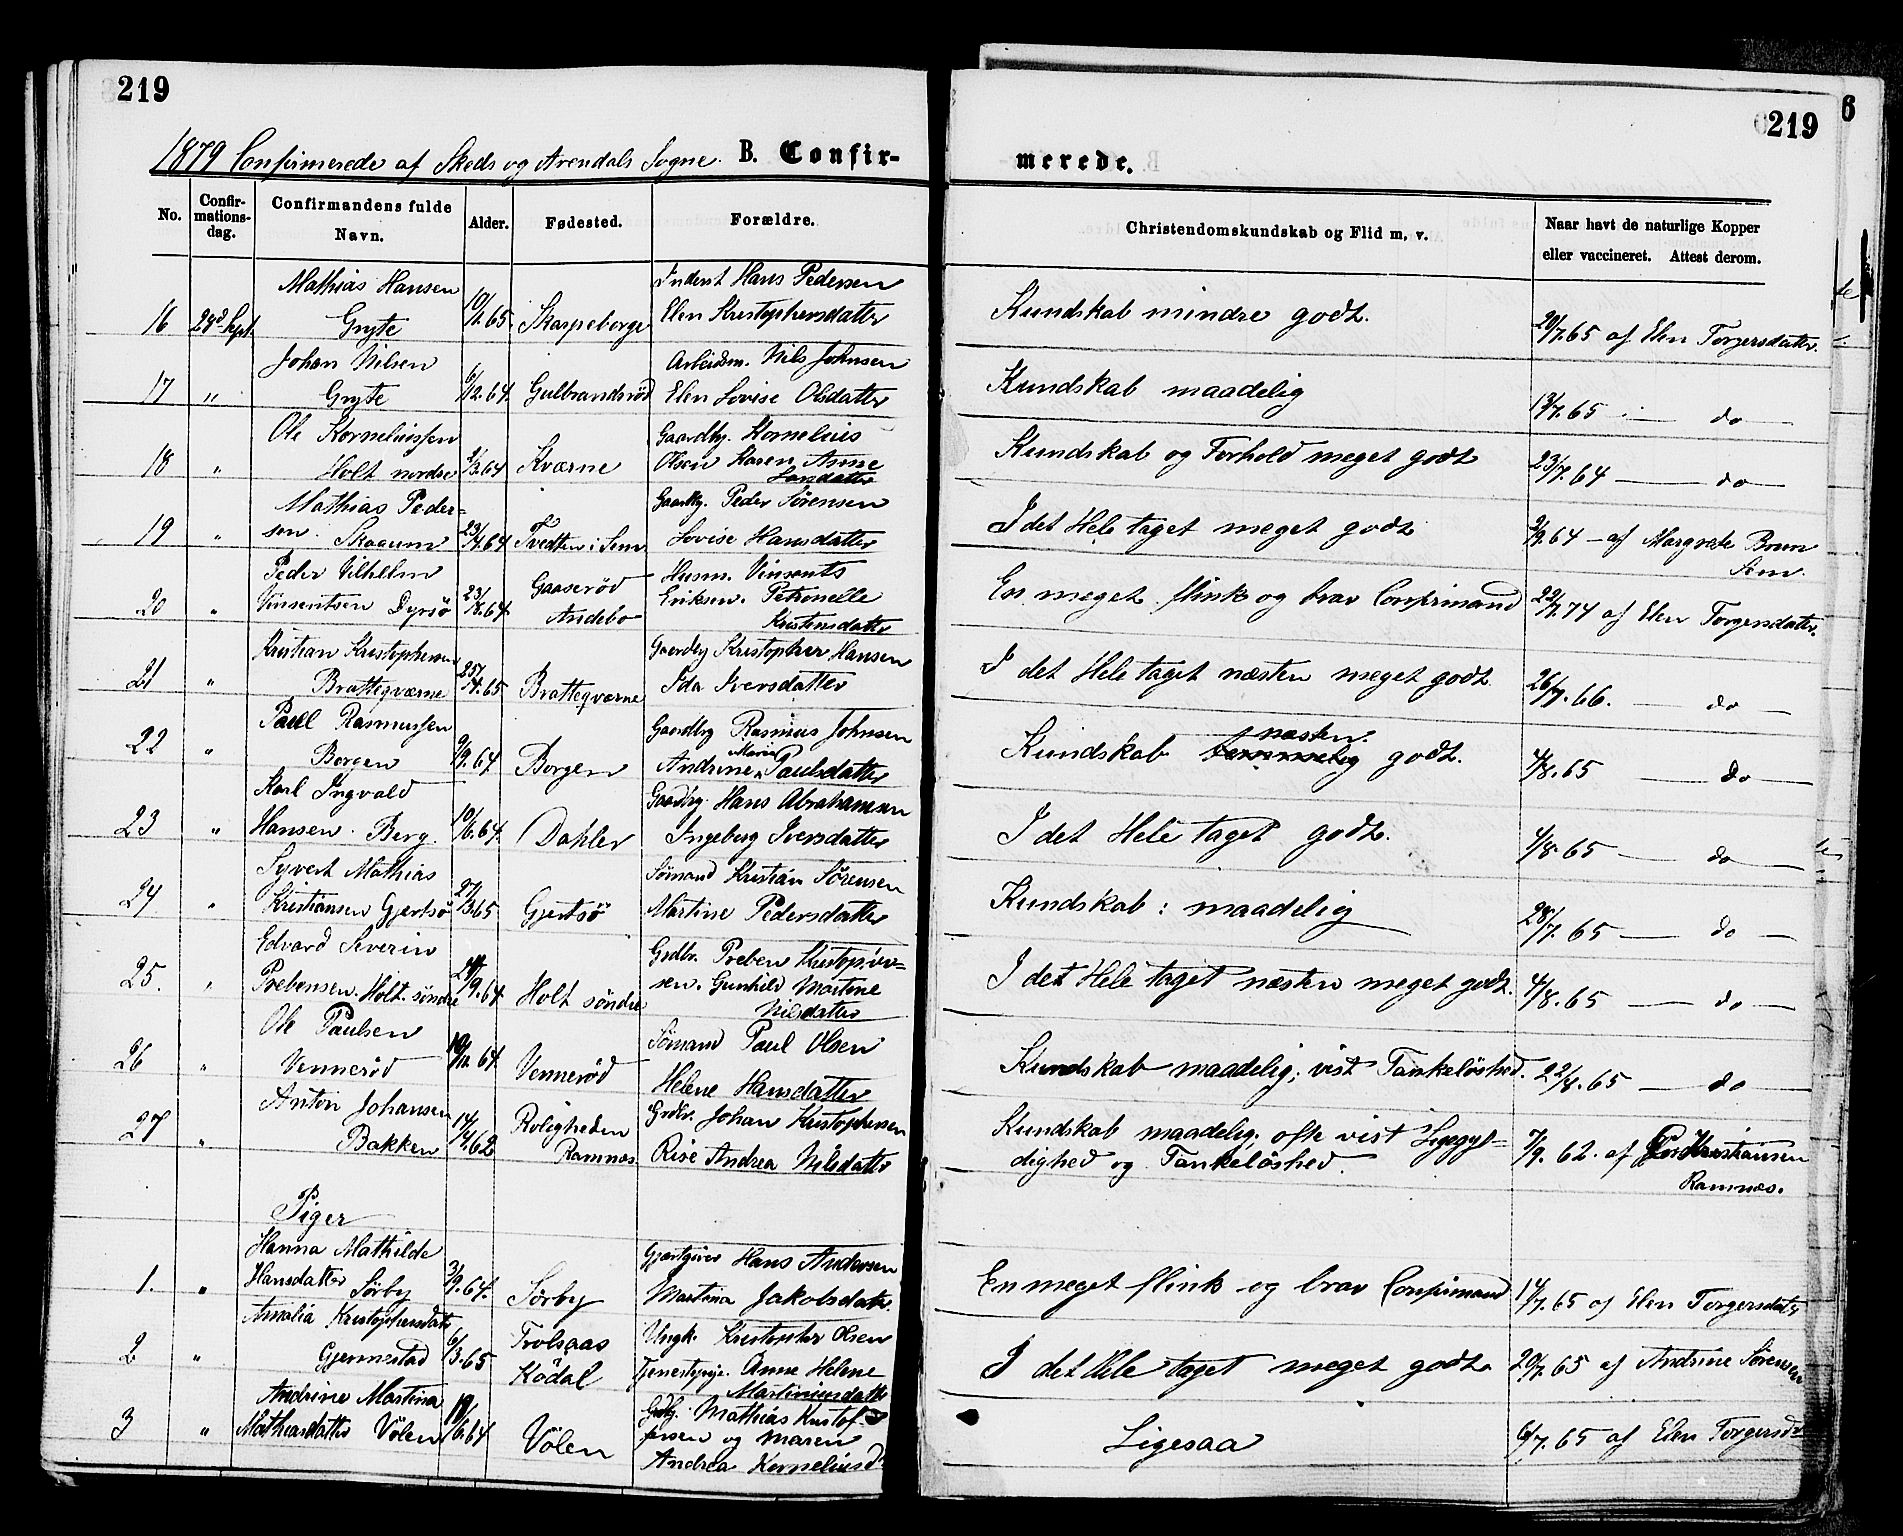 219
219
6
1879 Confirmerede af Skeds og Arendals Sogne. B. Confir-
merede.
No. Confir-mations-dag. Confirmandens fulde Navn. Alder. Fødested. Forældre. Christendomskundskab og Flid m, v. Naar havt de naturlige Kopper eller vaccineret. Attest derom.
Mathias Hansen Inderst Hans Pedersen
16 28d Sept. Gryte 10/11.65. Skarpeborge Elen Kristophersdatter Kundskab mindre godt. 20/7.65 af Elen Torgersdatter.
Johan Nilsen Arbeidsm. Nils Johnsen
17 " Gryte 6/12.64. Gulbrandsrød Elen Lovise Olsdatter Kundskab maadelig 13/7.65 — do —
Ole Kornelinssen Gaardbr. Kornelius
18 " Holt nordre 2/3.64 Kværne Olsen Karen Anne Kundskab og Forhold meget godt 23/7.64 — do —
Larsdatter
Mathias Peder= Gaardbr. Peder Sørensen
19 " sen. Skaaum 23/4.64 Tvedten i Sem Lovise Hansdatter I det Hele taget meget godt 2/9.64 — af Margrete Brun
Sem.
Peder Vilhelm Gaaserød Husm. Vinsents
20 " Vinsentsen Dyrsø 23/8.64 Andebo Eriksen. Petronelle En meget flink og brav Confirmand 22/7.74 af Elen Torgersdatter.
Kristensdatter
Kristian Kristophersen Gaardbr Kristopher Hansen
21 " Brattegværne 25/4.65 Brattegværne Ida Iversdatter I det Hele taget næsten meget godt 26/7.66. — do —
Paul Rasmussen Gaardbr Rasmus Johnsen
22 " Borgen 9/9.64 Borgen Andrine Maria Paulsdatter Kundskab næsten godt. 4/8.65 — do —
Karl Ingvald Gaardbr. Hans Abrahamsen
23 " Hansen. Berg. 10/6.64. Dahler Ingeborg Iversdatter I det Hele taget godt. 4/8.65 — do —
Syvert Mathias Sømand Kristian Sørensen
24 " Kristiansen Gjertsø 27/3.65 Gjertsø Martine Pedersdatter Kundskab: maadelig 28/7.65 — do —
Edvard Severin Grdbr. Preben Kristoper=
25. " Prebensen. Holt. søndre /9.64 Holt søndre sen. Gunhild Martine I det Hele taget næsten meget godt. 4/8.65 — do —
Nilsdatter
Ole Paulsen Sømand Paul Olsen
26 " Vennerød 64. Vennerød Helene Hansdatter Kundskab maadelig; vist Tankeløshed. 22/8.65 — do
Anton Johansen Roligheden Grdbr. Johan Kristophersen
27 " Bakken 14/4.62 Ramnæs. Rise Andrea Nilsdatter Kundskab maadelig; ofte vist Ligegyl=
dighed og Tankeløshed. 7/9.62. af Kristiansen
Ramnæs.
Piger
Hanna Mathilde Gjæstgiver Hans Andersen
1. " Hansdatter Sørby 3/9.64. Sørby Martina Jakobsdatr. En meget flink og brav Confirmand 14/7.65 af Elen Torgersdatr
Amalia Kristophersdatr Trolsaas Ungk. Kristopher Olsen
2 " Gjermestad 6/3.65 Kødal Tjenestepige. Anne Helene I det Hele taget meget godt. 20/7.65 af Andrine Sørensen
Martiniusdatter
Andrine Martina Gdbr. Mathias Kristof
3 " Mathiasdatter Vølen 19/6.64 Vølen fersen og Maren Ligesaa 6/7.65 af Elen Torgersdr
Andrea Korneliusd